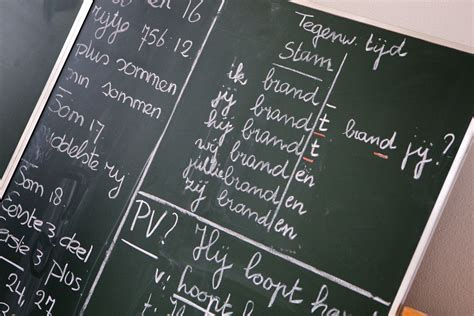 en 16
rijtje 756:12
plus sommen
min sommen
Som 17
middelste rij
Som 18.
eerste 3 deel
eerste 3 plus
24, 27,
Tegenw. tijd
Stam
ik brand
jij brand t brand jij?
hij brand t
wij branden
jullie branden
zij branden
PV? Hij loopt